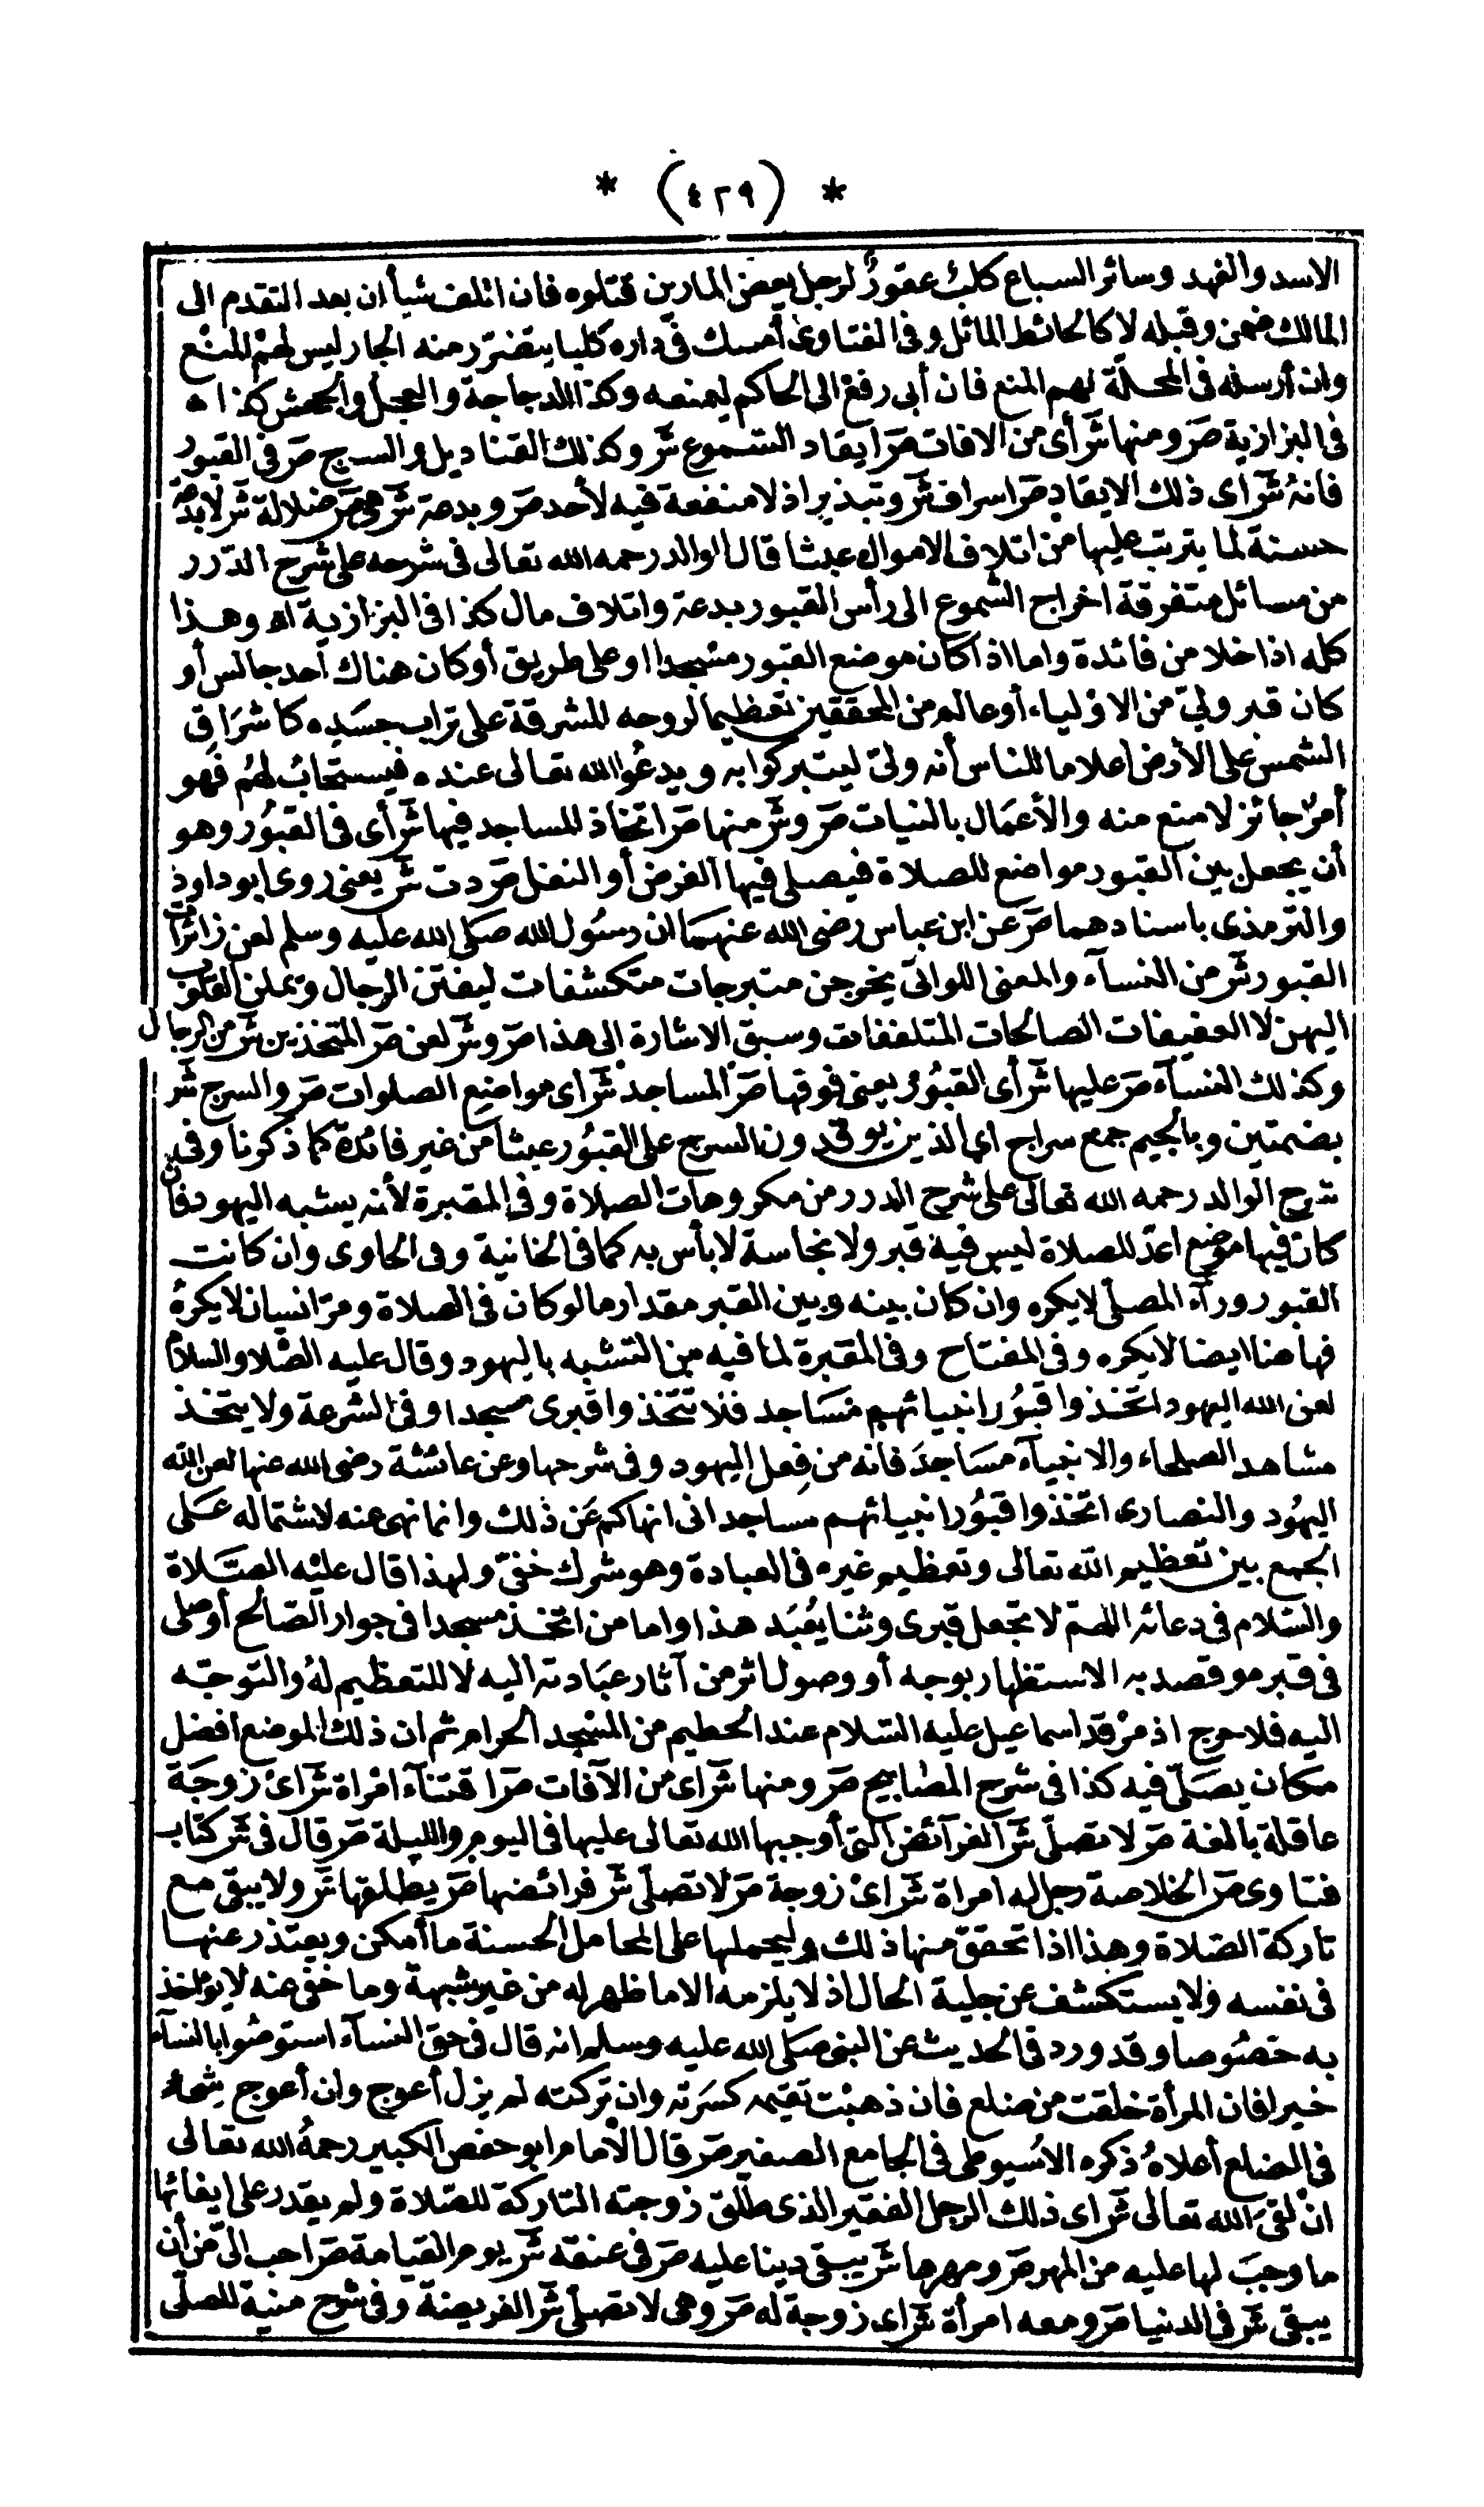 * (٤٢٩) *
الاسد والفهد وسائر السباع كلب عقور لرجل يعض المارين قتلوه فان اتلف شيأ ان بعد التقدم الى
المالك ضمن وقبله لا كالحائط المائل وفى الفتاوى أمسك فى داره كلبا يتضرر منه الجار ليس لهم المنع
وان أرسله فى المحلة لهم المنع فان أبى رفع الى الحاكم ليمنعه وكذا الدجاجة والعجل والجحش كذا اه
فى البزازية صر ومنها شر أى من الافات صر ايقاد الشموع شر وكذلك القناديل والسرج صر فى القبور
فانه شر اى ذلك الايقاد صر اسراف شر وتبذير اذ لا منفعة فيه لأحد صر وبدعة شر وهى صر ضلالة شر لا بدعة
حسنة لما يترتب عليها من اتلاف الاموال عبثا قال الوالد رحمه الله تعالى فى شرحه على شرح الدرر
من مسائل متفرقة اخراج الشموع الى رأس القبور بدعة واتلاف مال كذا فى البزازية اه وهذا
كله اذا خلا من فائدة واما اذا كان موضع القبور مسجدا او على طريق أو كان هناك أحد جالس أو
كان قبر ولى من الاولياء أو عالم من المحققين تعظيما لروحه المشرقة على تراب جسده كاشراق
الشمس على الأرض اعلاما للناس أنه ولى ليتبركوا به ويدعوا الله تعالى عنده فيستجاب لهم فهو
أمر جائز لا منع منه والأعمال بالنيات صر وشر منها صر اتخاذ المساجد فيها شر أى فى القبور وهو
أن يجعل بين القبور مواضع للصلاة فيصلى فيها الفرض أو النفل صر دت شر يعنى روى ابو داود
والترمذى باسنادهما صر عن ابن عباس رضى الله عنهما ان رسول الله صلى الله عليه وسلم لعن زائرات
القبور شر من النساء والمعنى اللواتى يخرجن متبرجات متكشفات ليفتن الرجال وتملن القلوب
اليهن لا العفيفات الصالحات المتلففات وسبق الاشارة الى هذا صر وشر لعن صر المتخذين شر من الرجال
وكذلك النساء صر عليها شر أى القبور يعنى فوقها صر المساجد شر اى مواضع الصلوات صر والسرج شر
بضمتين وبالجيم جمع سراج اى الذين يوقدون السرج على القبور عبثا من غير فائدة كما ذكرنا وفى
شرح الوالد رحمه الله تعالى على شرح الدرر من مكروهات الصلاة وفى المقبرة لأنه يشبه اليهود فان
كان فيها موضع اعد للصلاة ليس فيه قبر ولا نجاسة لا بأس به كما فى الخانية وفى الحاوى وان كانت
القبور وراء المصلى لا يكره وان كان بينه وبين القبر مقدار ما لو كان فى الصلاة ومر انسان لا يكره
فها هنا ايضا لا يكره وفى المفتاح وفى المقبرة لما فيه من التشبه باليهود وقال عليه الصلاة والسلام
لعن الله اليهود اتخذوا قبور انبيائهم مساجد فلا تتخذوا قبرى مسجدا وفى الشرعة ولا يتخذ
مشاهد الصلحاء والانبياء مساجد فانه من فعل اليهود وفى شرحها وعن عائشة رضى الله عنها لعن الله
اليهود والنصارى اتخذوا قبور انبيائهم مساجد انى انهاكم عن ذلك وانما نهى عنه لاشتماله على
الجمع بين تعظيم الله تعالى وتعظيم غيره فى العبادة وهو شرك خفى ولهذا قال عليه الصلاة
والسلام فى دعائه اللهم لا تجعل قبرى وثنا يعبد هذا واما من اتخذ مسجدا فى جوار الصالح أو صلى
فى قبر موقصد به الاستظهار بوجه أو وصول اثر من آثار عبادته اليه لا للتعظيم له والتوجه
اليه فلا حرج اذ مرقد اسماعيل عليه السلام عند الحطيم من المسجد الحرام ثم ان ذلك الموضع افضل
مكان يصلى فيه كذا فى شرح المصابيح صر ومنها شر اى من الآفات صر اقتناء امراة شر اى زوجة
عاقلة بالغة صر لا تصلى شر الفرائض التى أوجبها الله تعالى عليها فى اليوم والليلة صر قال فى شر كتاب
فتاوى صر الخلاصة رجل له امراة شر اى زوجة صر لا تصلى شر فرائضها صر يطلقها شر ولا يبقى مع
تاركة الصلاة وهذا اذا تحقق منها ذلك وليحملها على المحامل الحسنة ما أمكن ويعتذر عنها
فى نفسه ولا يستكشف عن جلية الحال اذ لا يلزمه الا ما ظهر له من غير شبهة وما خفى عنه لا يؤاخذ
به خصوصا وقد ورد فى الحديث عن النبى صلى الله عليه وسلم انه قال فى حق النساء استوصوا بالنساء
خيرا فان المرأة خلقت من ضلع فان ذهبت تقيمه كسرته وان تركته لم يزل أعوج وان أعوج شىء
فى الضلع أعلاه ذكره الاسيوطى فى الجامع الصغير صر قال الأمام ابو حفص الكبير رحمه الله تعالى
ان لقى الله تعالى شر اى ذلك الرجل الفقير الذى طلق زوجته التاركة للصلاة ولم يقدر على ايفائها
ما وجب لها عليه من المهر صر ومهرها شر يبقى دينا عليه صر فى عنقه شر يوم القيامة صر احب الى من أن
يبقى شر فى الدنيا صر ومعه امرأة شر اى زوجة له صر وهى لا تصلى شر الفريضة وفى شرح منية المصلى